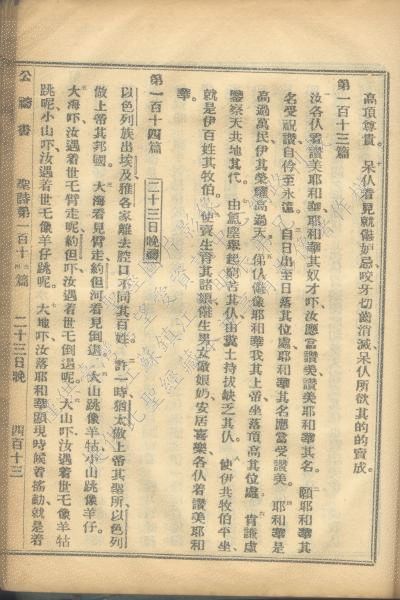 高頂尊貴。呆仈看見就儺妒忌咬牙切齒消滅呆仈所欲其的的實成。
第一百十三篇
汝各仈着讚美耶和華耶和華其奴才吓汝應當讚美讚美耶和華其名。願耶和華其
名受祝讚自伶至永遠。自日出至日落其位處耶和華其名應當受讚美。耶和華是
高過萬民伊其榮耀高過天。
耶和華我其上帝坐落頂高其位處。肯謙虛
鑒察天共地其代。
窮苦其仈由糞土持拔缺乏其仈。使伊共牧伯平坐、
就是伊百姓其牧伯。使賣生育其諸娘
生男女做娘奶安居喜樂各仈着讚美耶和
華。
第一百十四篇 二十三日晚禱
以色列族出埃及雅各家離去腔口不同其百姓。許一時猶太做上帝其聖所以色列
做上帝其邦國。大海看見臂走約但河看見倒退。大山跳像羊牯小山跳像羊仔。
大海吓汝遇着世乇臂走呢約但吓汝遇着世乇倒退呢。大山吓汝遇着世乇像羊牯
跳呢小山吓汝遇着世乇像羊仔跳呢。大地吓汝落耶和華顯現時候着搖動就是着
公禱書 聖詩第一百十四篇 二十三日晚 四百十三